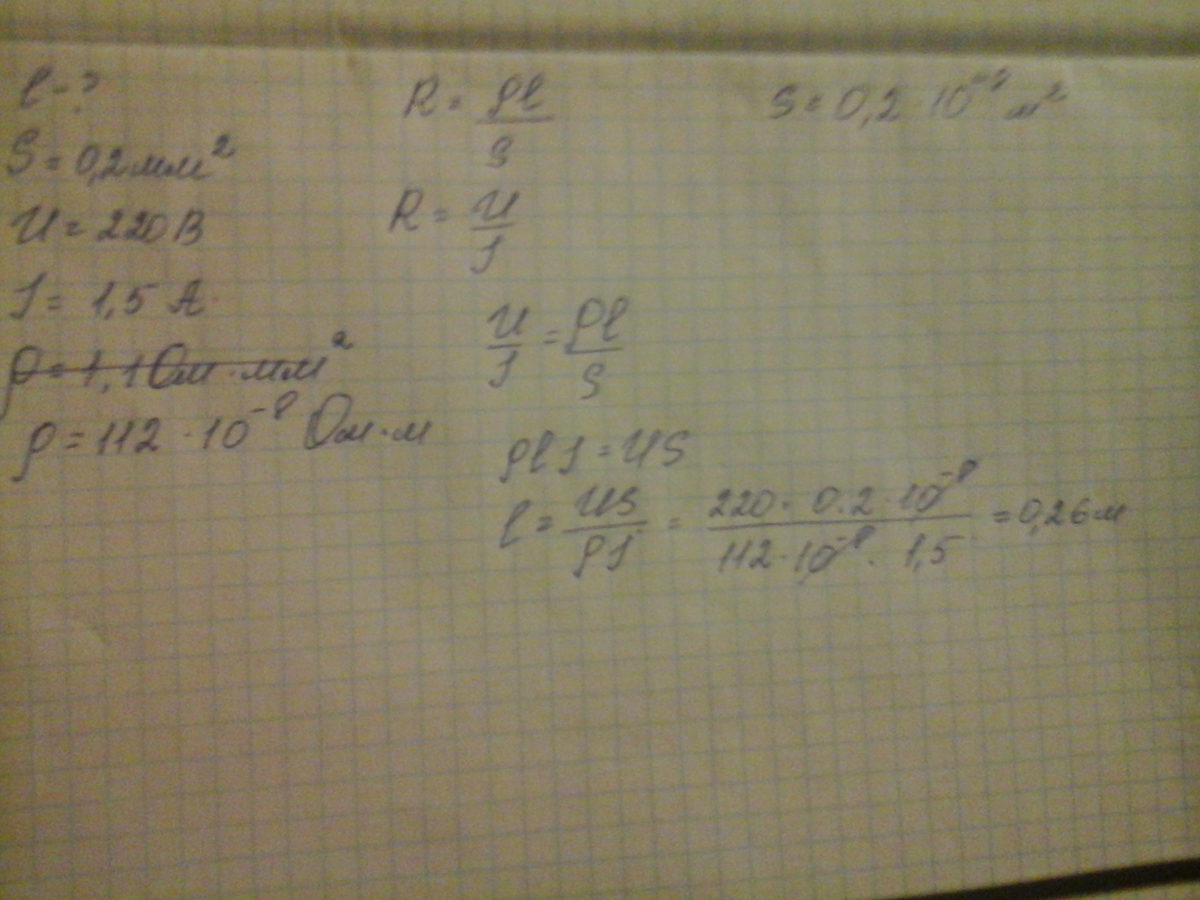 l - ?
S = 0,2 мм²
U = 220 В
I = 1,5 А
ρ = 1,1 Ом · мм²
ρ = 112 · 10⁻⁸ Ом·м
R = ρl / S
R = U / I
U / I = ρl / S
ρlI = US
l = US / ρI = 220 · 0.2 · 10⁻⁸ / 112 · 10⁻⁸ · 1,5 = 0,26 м
S = 0,2 · 10 м²